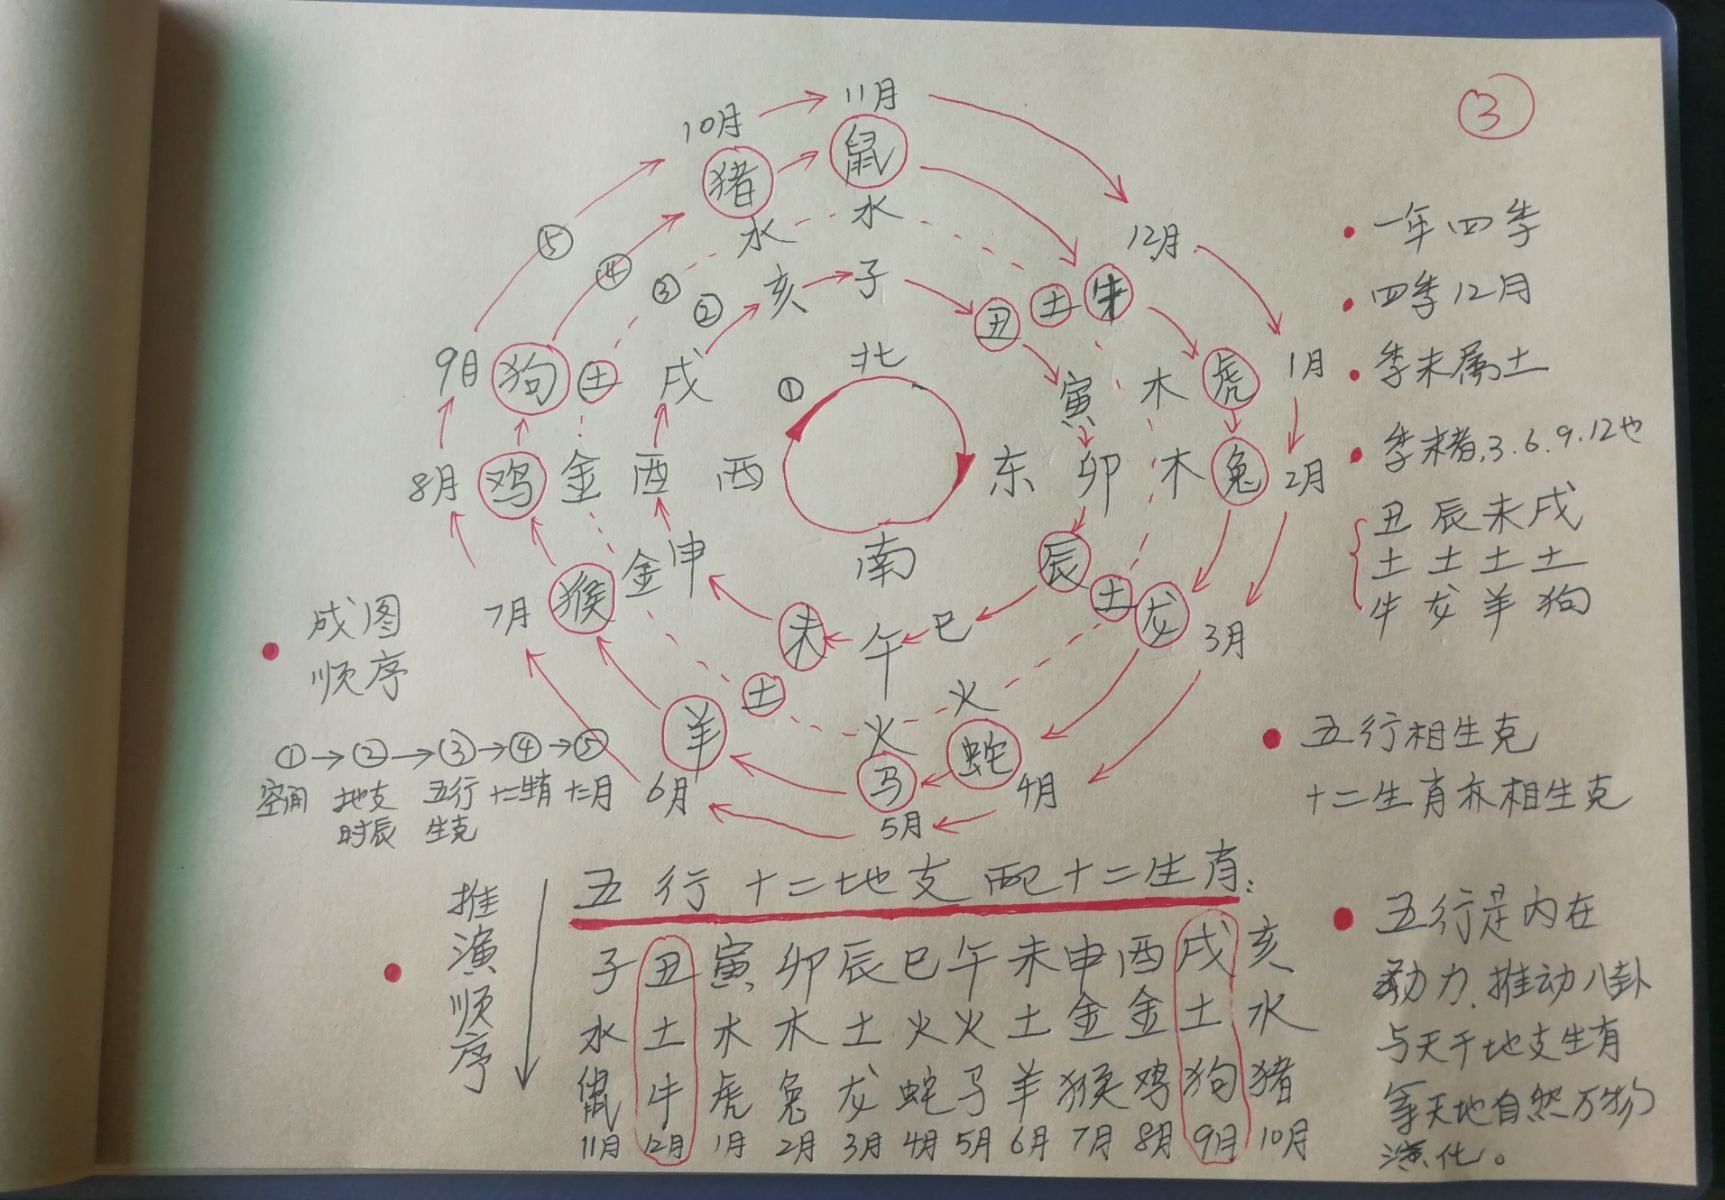 ③
10月
11月
12月
1月
2月
3月
4月
5月
6月
7月
8月
9月
猪
鼠
牛
虎
兔
龙
蛇
马
羊
猴
鸡
狗
水
水
土
木
木
土
火
火
土
金
金
土
亥
子
丑
寅
卯
辰
巳
午
未
申
酉
戌
北
东
南
西
①
②
③
④
⑤
• 一年四季
• 四季12月
• 季末属土
• 季末者,3.6.9.12也
丑 辰 未 戌
土 土 土 土
牛 龙 羊 狗
• 五行相生克
十二生肖亦相生克
• 五行是内在
动力,推动八卦
与天干地支生肖
等天地自然万物
演化。
• 成图
顺序
①→②→③→④→⑤
空间 地支 五行 十二生肖 十二月
时辰 生克
• 推演顺序
五行十二地支配十二生肖:
子 丑 寅 卯 辰 巳 午 未 申 酉 戌 亥
水 土 木 木 土 火 火 土 金 金 土 水
鼠 牛 虎 兔 龙 蛇 马 羊 猴 鸡 狗 猪
11月 12月 1月 2月 3月 4月 5月 6月 7月 8月 9月 10月